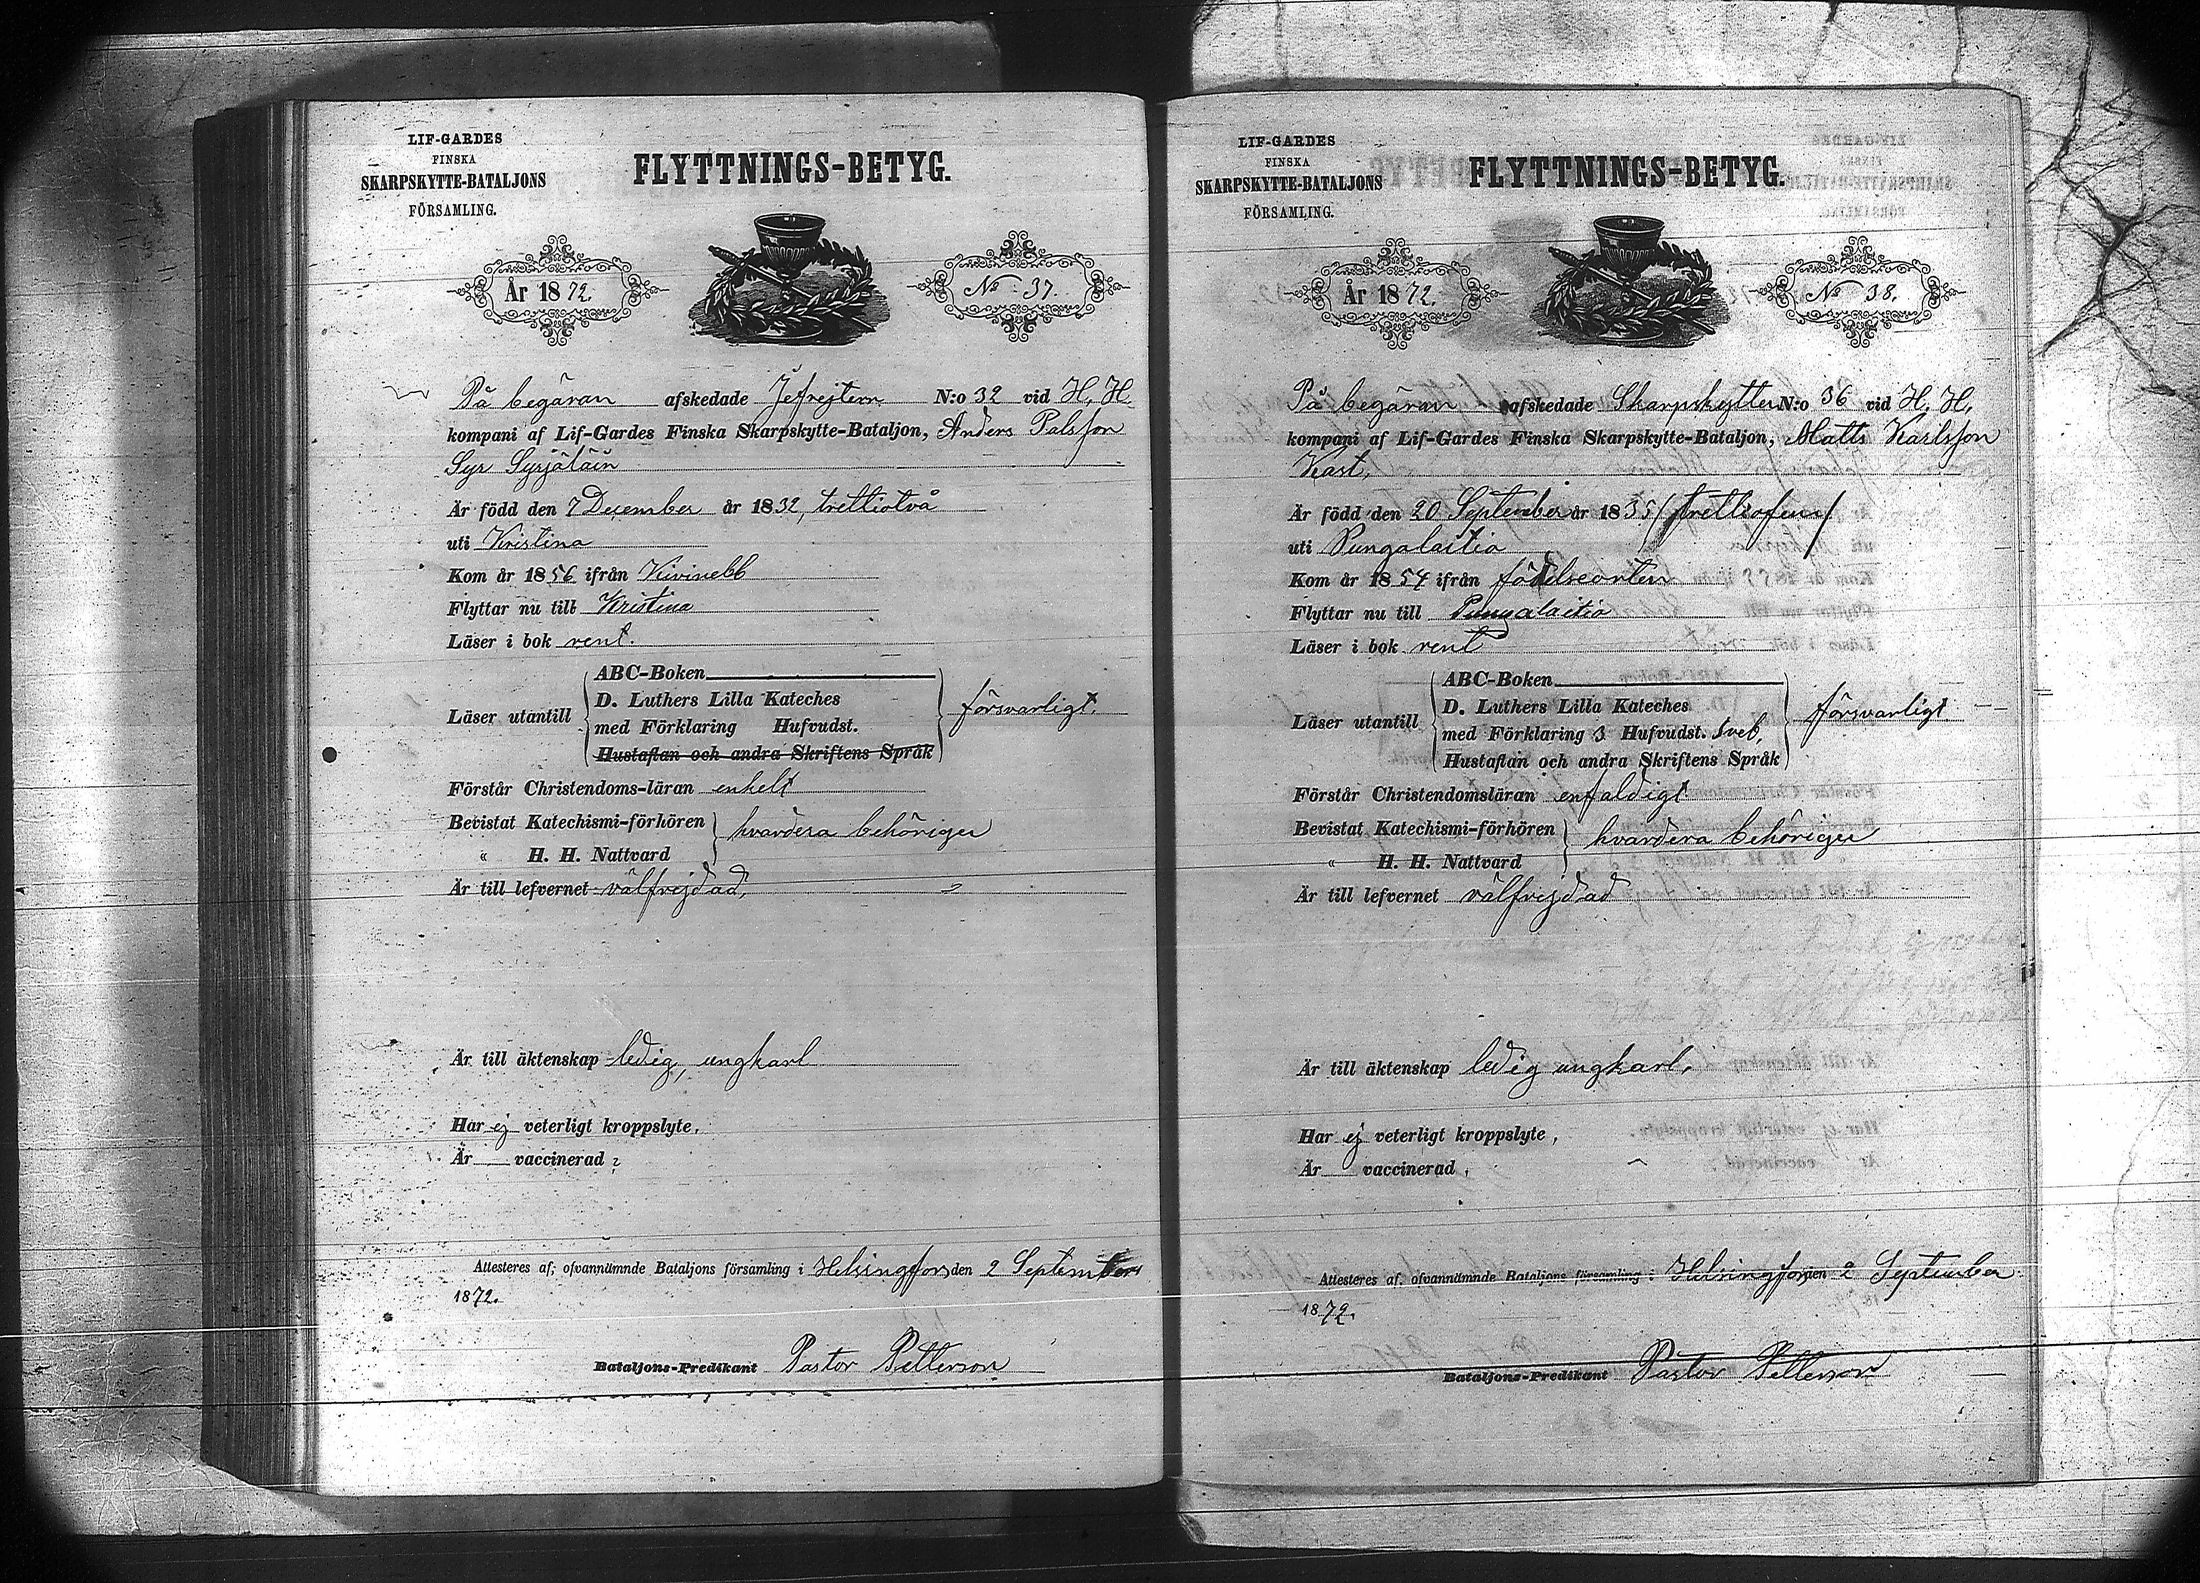 LIF-GARDES
FINSKA
SKARPSKYTTE-BATALJONS
FÖRSAMLING.
FLYTTNINGS-BETYG.
År 1872.
No 37.
På begäran afskedade Jefrejtern N:o 32 vid H. H.
kompani af Lif-Gardes Finska Skarpskytte-Bataljon, Anders Palsson
Syr Syrjäläin
Är född den 7 December år 1832, trettiotvå
uti Kristina
Kom år 1856 ifrån Kivinebb
Flyttar nu till Kristina
Läser i bok rent.
Läser utantill
ABC-Boken
D. Luthers Lilla Kateches
med Förklaring Hufvudst.
Hustaflan och andra Skriftens Språk
försvarligt.
Förstår Christendoms-läran enkelt
Bevistat Katechismi-förhören
« H. H. Nattvard
hvardera behörigen
Är till lefvernet välfrejdad,
Är till äktenskap ledig, ungkarl
Har ej veterligt kroppslyte,
Är vaccinerad,
Attesteras af, ofvannämnde Bataljons församling i Helsingfors den 2 September
1872.
Bataljons-Predikant Pastor Petterson
LIF-GARDES
FINSKA
SKARPSKYTTE-BATALJONS
FÖRSAMLING.
FLYTTNINGS-BETYG.
År 1872.
No 38.
På begäran afskedade Skarpskytten N:o 36 vid H. H.
kompani af Lif-Gardes Finska Skarpskytte-Bataljon, Matts Karlsson
Kast,
Är född den 20 September år 1835 /trettiofem/
uti Pungalaitio
Kom år 1854 ifrån födelseorten
Flyttar nu till Pungalaitio
Läser i bok rent
Läser utantill
ABC-Boken
D. Luthers Lilla Kateches
med Förklaring 3 Hufvudst. Sveb,
Hustaflan och andra Skriftens Språk
försvarligt
Förstår Christendomsläran enfaldigt
Bevistat Katechismi-förhören
« H. H. Nattvard
hvardera behörigen
Är till lefvernet välfrejdad
Är till äktenskap ledig ungkarl,
Har ej veterligt kroppslyte,
Är vaccinerad,
Attesteras af, ofvannämnde Bataljons församling i Helsingfors den 2 September
1872.
Bataljons-Predikant Pastor Petterson